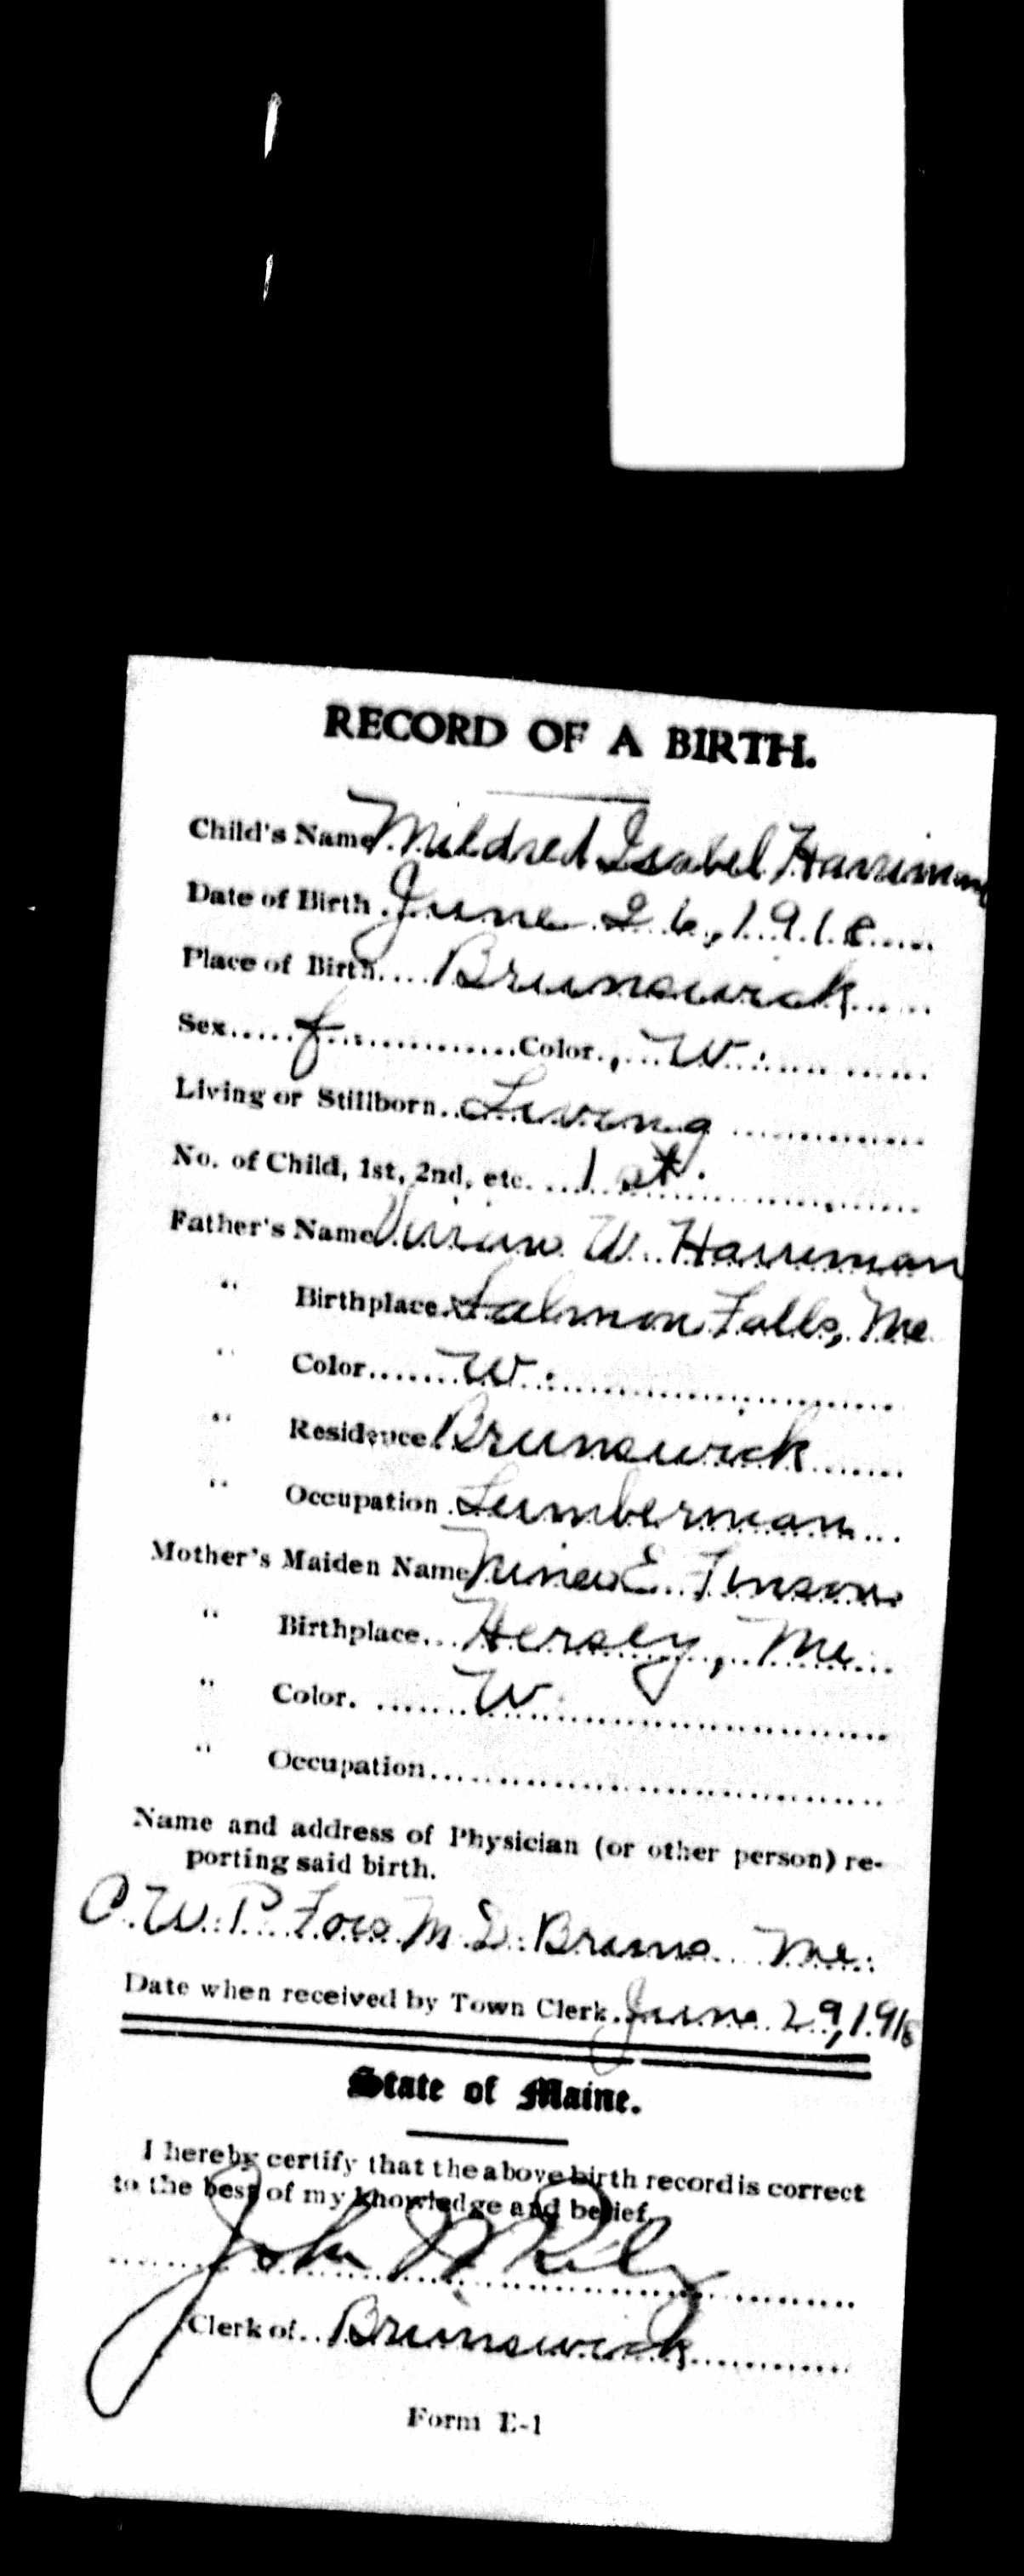 RECORD OF A BIRTH.
Child's Name Mildred Isabel Harriman
Date of Birth June 26, 1918
Place of Birth Brunswick
Sex f Color W.
Living or Stillborn Living
No. of Child, 1st, 2nd, etc. 1st.
Father's Name W. Harriman
" Birthplace Salmon Falls, Me
" Color W.
" Residence Brunswick
" Occupation Lumberman
Mother's Maiden Name Nina E.
" Birthplace Hersey, Me
" Color. W
" Occupation
Name and address of Physician (or other person) re-
porting said birth.
W. P. M. D. Bruns. Me.
Date when received by Town Clerk June 29, 1918
State of Maine.
I hereby certify that the above birth record is correct
to the best of my knowledge and belief.
John W Riley
Clerk of Brunswick
Form E-1